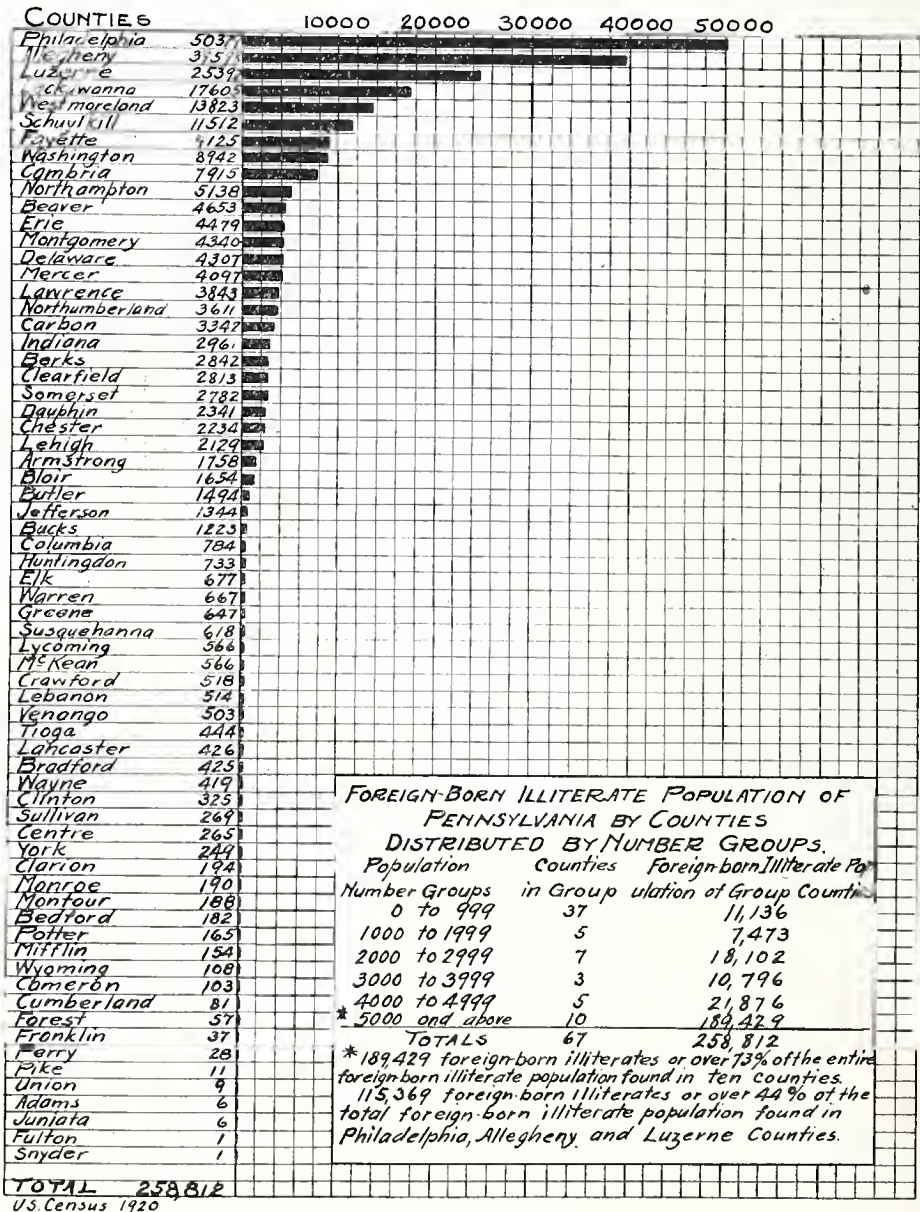 COUNTIES 10000 20000 30000 40000 50000
Philadelphia
Allegheny
Luzerne 2539
17605
Westmoreland 13823
Schuylkill 11512
Fayette 9125
Washington 8942
Cambria 7915
Northampton 5138
Beaver 4653
Erie 4479
Montgomery 4340
Delaware 4307
Mercer 4097
Lawrence 3843
Northumberland 3611
Carbon 3342
Indiana 2961
Berks 2842
Clearfield 2813
Somerset 2782
Dauphin 2341
Chester 2234
Lehigh 2129
Armstrong 1758
Blair 1654
Butler 1494
Jefferson 1344
Bucks 1223
Columbia 784
Huntingdon 733
Elk 677
Warren 667
Greene 647
Susquehanna 618
Lycoming 566
McKean 566
Crawford 518
Lebanon 514
Venango 503
Tioga 444
Lancaster 426
Bradford 425
Wayne 419
Clinton 325
Sullivan 269
Centre 265
York 249
Clarion 194
Monroe 190
Montour 188
Bedford 182
Potter 165
Mifflin 154
Wyoming 108
Cameron 103
Cumberland 81
Forest 57
Franklin 37
Perry 28
Pike 11
Union 9
Adams 6
Juniata 6
Fulton 1
Snyder 1
TOTAL 258,812
U.S. Census 1920
FOREIGN-BORN ILLITERATE POPULATION OF
PENNSYLVANIA BY COUNTIES
DISTRIBUTED BY NUMBER GROUPS.
Population Counties Foreign-born Illiterate Po
Number Groups in Group ulation of Group Counti
0 to 999 37 11,136
1000 to 1999 5 7,473
2000 to 2999 7 18,102
3000 to 3999 3 10,796
4000 to 4999 5 21,876
* 5000 and above 10 189,429
TOTALS 67 258,812
* 189,429 foreign-born illiterates or over 73% of the entire
foreign-born illiterate population found in ten counties.
115,369 foreign-born illiterates or over 44% of the
total foreign-born illiterate population found in
Philadelphia, Allegheny and Luzerne Counties.